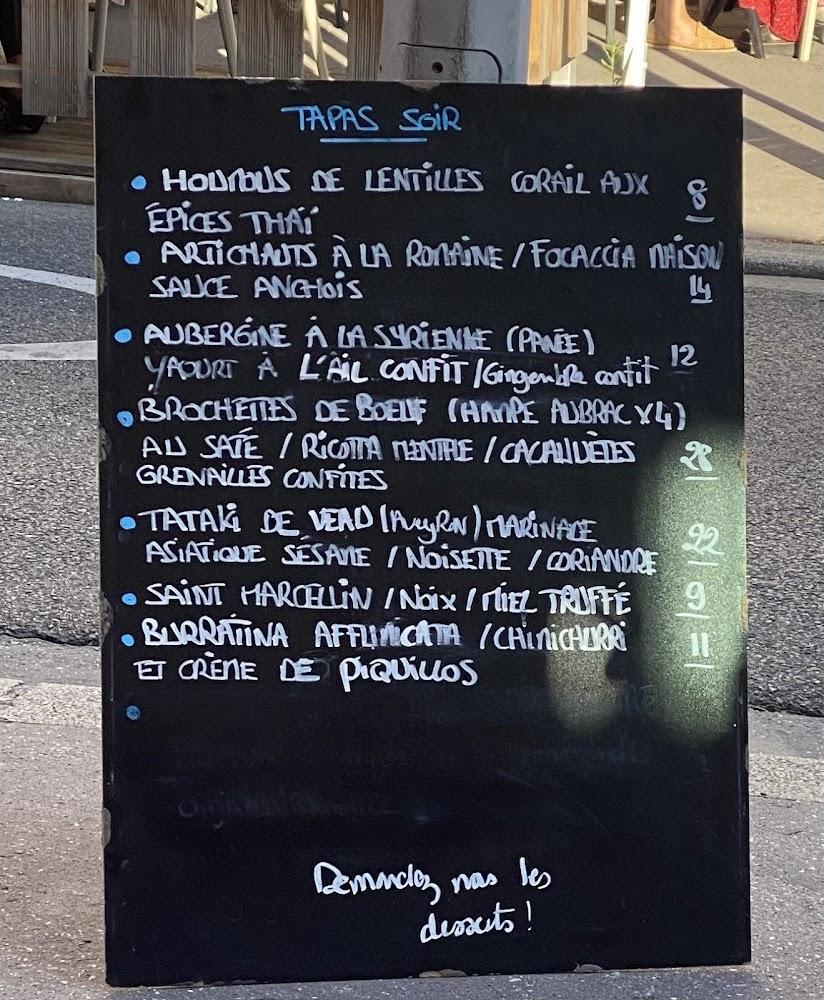 TAPAS SOIR
• HOUMOUS DE LENTILLES CORAIL AUX 8
ÉPICES THAÏ
• ARTICHAUTS À LA ROMAINE / FOCACCIA MAISON
SAUCE ANCHOIS 14
• AUBERGINE À LA SYRIENNE (PANÉE)
YAOURT À L'AIL CONFIT / Gingembre confit 12
• BROCHETTES DE BOEUF (HAMPE AUBRAC X4)
AU SATÉ / RICOTTA MENTHE / CACAHUÈTES 28
GRENAILLES CONFITES
• TATAKI DE VEAU (AveyRoN) MARINADE
ASIATIQUE SÉSAME / NOISETTE / CORIANDRE 22
• SAINT MARCELLIN / NOIX / MIEL TRUFFÉ 9
• BURRATINA AFFUMICATA / CHIMICHURRI 11
ET CRÈME DE PIQUILLOS
•
Demandez nos les
desserts !